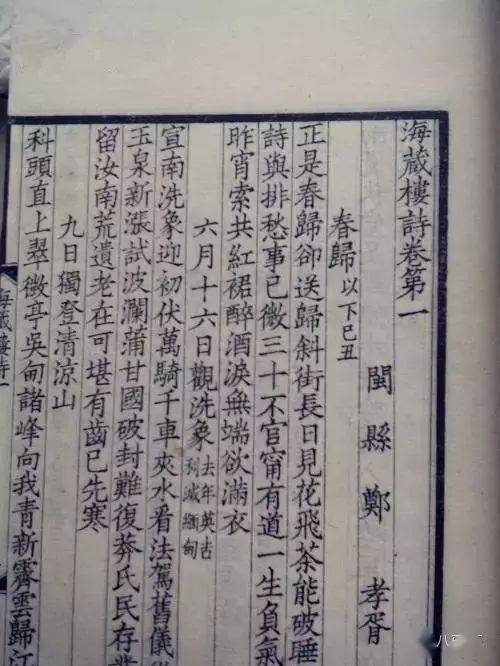 海藏樓詩卷第一
閩縣鄭孝胥
春歸以下己丑
正是春歸卻送歸斜街長日見花飛茶能破睡
詩與排愁事已微三十不官甯有道一生負氣
昨宵索共紅裙醉酒淚無端欲滿衣
六月十六日觀洗象去年英吉利滅緬甸
宣南洗象迎初伏萬騎千車夾水看法駕舊儀
玉泉新漲試波瀾蒲甘國破封難復莽氏民存
留汝南荒遺老在可堪有齒已先寒
九日獨登清涼山
科頭直上翠微亭吳甸諸峰向我青新霽雲歸江
海藏樓詩一